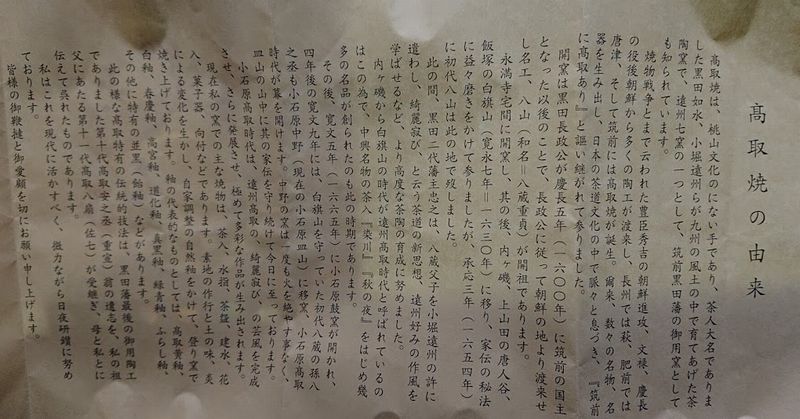 高取焼の由来
高取焼は、桃山文化のにない手であり、茶人大名でありま
した黒田如水、小堀遠州らが九州の風土の中で育てあげた茶
陶窯で、遠州七窯の一つとして、筑前黒田藩の御用窯として
も知られています。
焼物戦争とまで云われた豊臣秀吉の朝鮮進攻、文禄、慶長
の役後朝鮮から多くの陶工が渡来し、長州では萩、肥前では
唐津、そして筑前には高取焼が誕生。爾来、数々の名物、名
器を生み出し、日本の茶道文化の中で脈々と息づき、『筑前
に高取あり』と謳い継がれて参りました。
開窯は黒田長政公が慶長五年（一六〇〇年）に筑前の国主
となった以後のことで、長政公に従って朝鮮の地より渡来せ
し名工、八山（和名＝八蔵重貞）が開祖であります。
永満寺宅間に開窯し、其の後、内ヶ磯、上山田の唐人谷、
飯塚の白旗山（寛永七年＝一六三〇年）に移り、家伝の秘法
に益々磨きをかけて参りましたが、承応三年（一六五四年）
に初代八山は此の地で歿しました。
此の間、黒田二代藩主忠之は、八蔵父子を小堀遠州の許に
遣わし、綺麗寂び、と云う茶道の新思想、遠州好みの作風を
学ばせるなど、より高度な茶陶の育成に努めました。
内ヶ磯から白旗山の時代が遠州高取時代と呼ばれているの
はこの為で、中興名物の茶入『染川』『秋の夜』をはじめ幾
多の名品が創られたのも此の時期であります。
その後、寛文五年（一六六五年）に小石原鼓窯が開かれ、
四年後の寛文九年には、白旗山を守っていた初代八蔵の孫八
之丞も小石原中野（現在の小石原皿山）に移窯、小石原高取
時代が幕を開けます。中野の窯は一度も火を絶やす事なく、
皿山の山中に其の家伝を守り続けて今日に至っております。
小石原高取時代は、遠州高取の、綺麗寂び、の芸風を完成
させ、さらに発展させ、極めて多彩な作品が生み出されます。
現在私の窯での主な焼物は、茶入、水指、茶盌、建水、花
入、菓子器、向付などであります。素地の作行と土の味、炎
による変化を生かし、自家調整の自然釉をかけて、登り窯で
焼き上げております。釉の代表的なものとしては、高取黄釉、
白釉、春慶釉、高宮釉、道化釉、真黒釉、緑青釉、ふらし釉、
その他に特有の並黒（飴釉）などがあります。
此の様な高取特有の伝統的技法は、黒田藩最後の御用陶工
でありました第十代高取安之丞（重宣）翁の遺志を、私の祖
父にあたる第十一代高取八扇（佐七）が受継ぎ、母と私とに
伝えて呉れたものであります。
私はこれを現代に活かすべく、微力ながら日夜研鑽に努め
ております。
皆様の御鞭撻と御愛顧を切にお願い申し上げます。